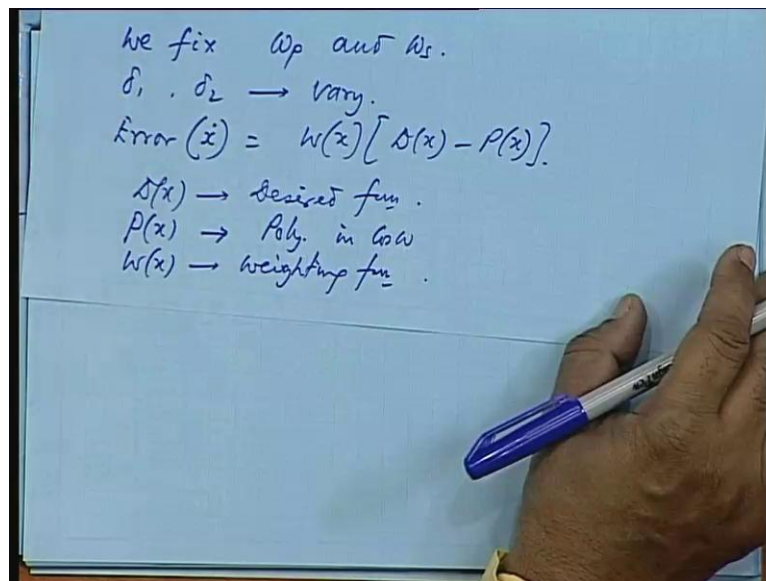 We fix ωp and ωs.
δ₁ , δ₂ → vary.
Error (x) = W(x) [ D(x) – P(x) ].
D(x) → Desired fun.
P(x) → Poly. in cosω
W(x) → weighting fun.